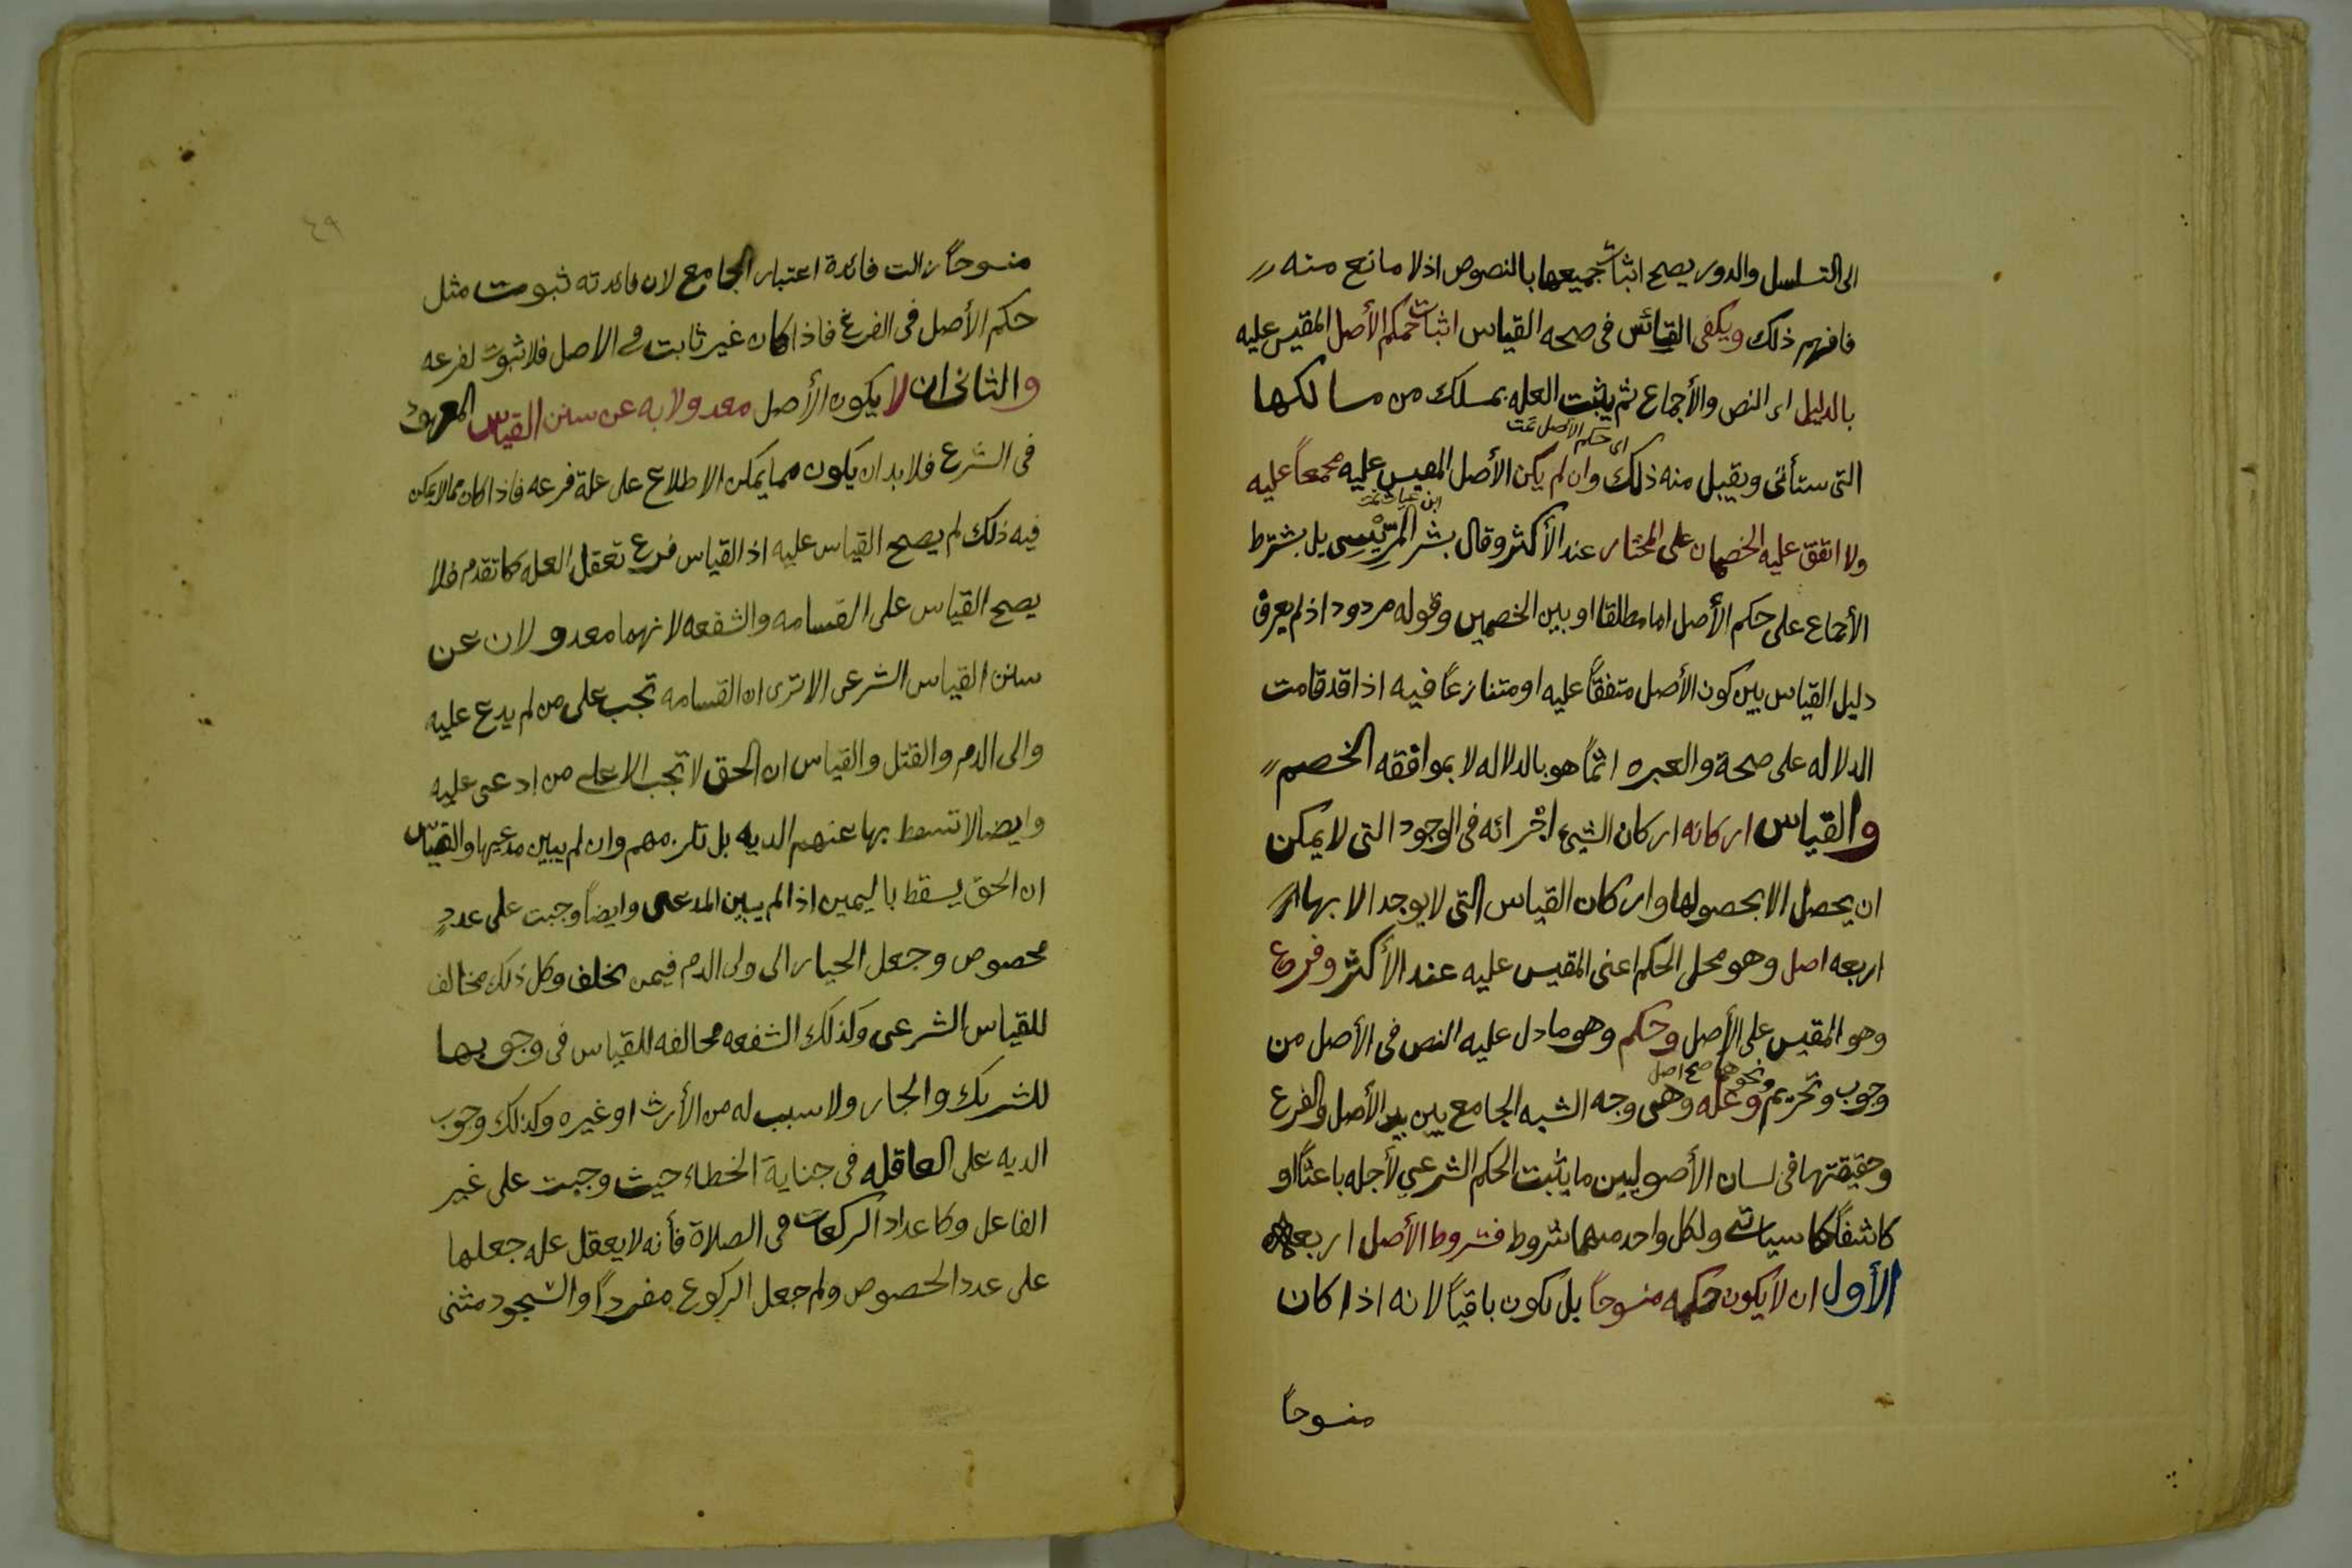 الى التسلسل والدور يصح اثبات جميعها بالنصوص اذ لا مانع منه
فافهم ذلك ويكفى القائس فى صحه القياس اثبات حكم الأصل المقيس عليه
بالدليل اى النص والأجماع ثم يثبت العله بمسلك من مسالكها
اى حكم الأصل تمت
التى ستأتى ويقبل منه ذلك وان لم يكن الأصل المقيس عليه مجمعاً عليه
ابن غياث تمت
ولا اتفق عليه الخصمان على المختار عند الأكثر وقال بشر المريسى بل يشترط
الأجماع على حكم الأصل اما مطلقا او بين الخصمين وقوله مردود اذ لم يعرف
دليل القياس بين كون الأصل متفقاً عليه او متنازعاً فيه اذا قد قامت
الدلاله على صحة والعبره انما هو بالدلاله لا بموافقه الخصم
والقياس اركانه اركان الشيء اجزائه فى الوجود التى لا يمكن
ان يحصل الا بحصولها واركان القياس التى لا يوجد الا بها
اربعه اصل وهو محل الحكم اعنى المقيس عليه عند الأكثر وفرع
وهو المقيس على الأصل وحكم وهو ما دل عليه النص فى الأصل من
ونحوهما صح اصل
وجوب وتحريم وعله وهى وجه الشبه الجامع بين الأصل والفرع
وحقيقتها فى لسان الأصوليين ما يثبت الحكم الشرعي لأجله باعثاً او
كاشفاً كما سيأتى ولكل واحد منهما شروط فشروط الأصل اربعه
الأول ان لا يكون حكمه منسوخاً بل يكون باقياً لانه اذا كان
منسوحاً
٤٩
منسوحاً زالت فائدة اعتبار الجامع لان فائدته ثبوت مثل
حكم الأصل فى الفرع فاذا كان غير ثابت فى الاصل فلا ثبوت لفرعه
والثانى ان لا يكون الأصل معدولا به عن سنن القياس المعهود
فى الشرع فلا بد ان يكون مما يمكن الاطلاع على علة فرعه فاذا كان مما لا يمكن
فيه ذلك لم يصح القياس عليه اذ القياس فرع تعقل العله كما تقدم فلا
يصح القياس على القسامه والشفعه لانهما معدولان عن
سنن القياس الشرعى الا ترى ان القسامه تجب على من لم يدع عليه
والى الدم والقتل والقياس ان الحق لا تجب الا على من ادعى عليه
وايضا لا تسقط بها عنهم الديه بل تلزمهم وان لم يبين مدعيها والقياس
ان الحق يسقط باليمين اذا لم يبين المدعى وايضاً وجبت على عددٍ
مخصوص وجعل الخيار الى ولى الدم فيمن يحلف وكل ذلك مخالف
للقياس الشرعى وكذلك الشفعه مخالفه للقياس فى وجوبها
للشريك والجار ولا سبب له من الأرث او غيره وكذلك وجوب
الديه على العاقله فى جناية الخطاء حيث وجبت على غير
الفاعل وكاعداد الركعات فى الصلاة فأنه لا يعقل عله جعلها
على عدد الخصوص ولم جعل الركوع مفرداً والسجود مثنى